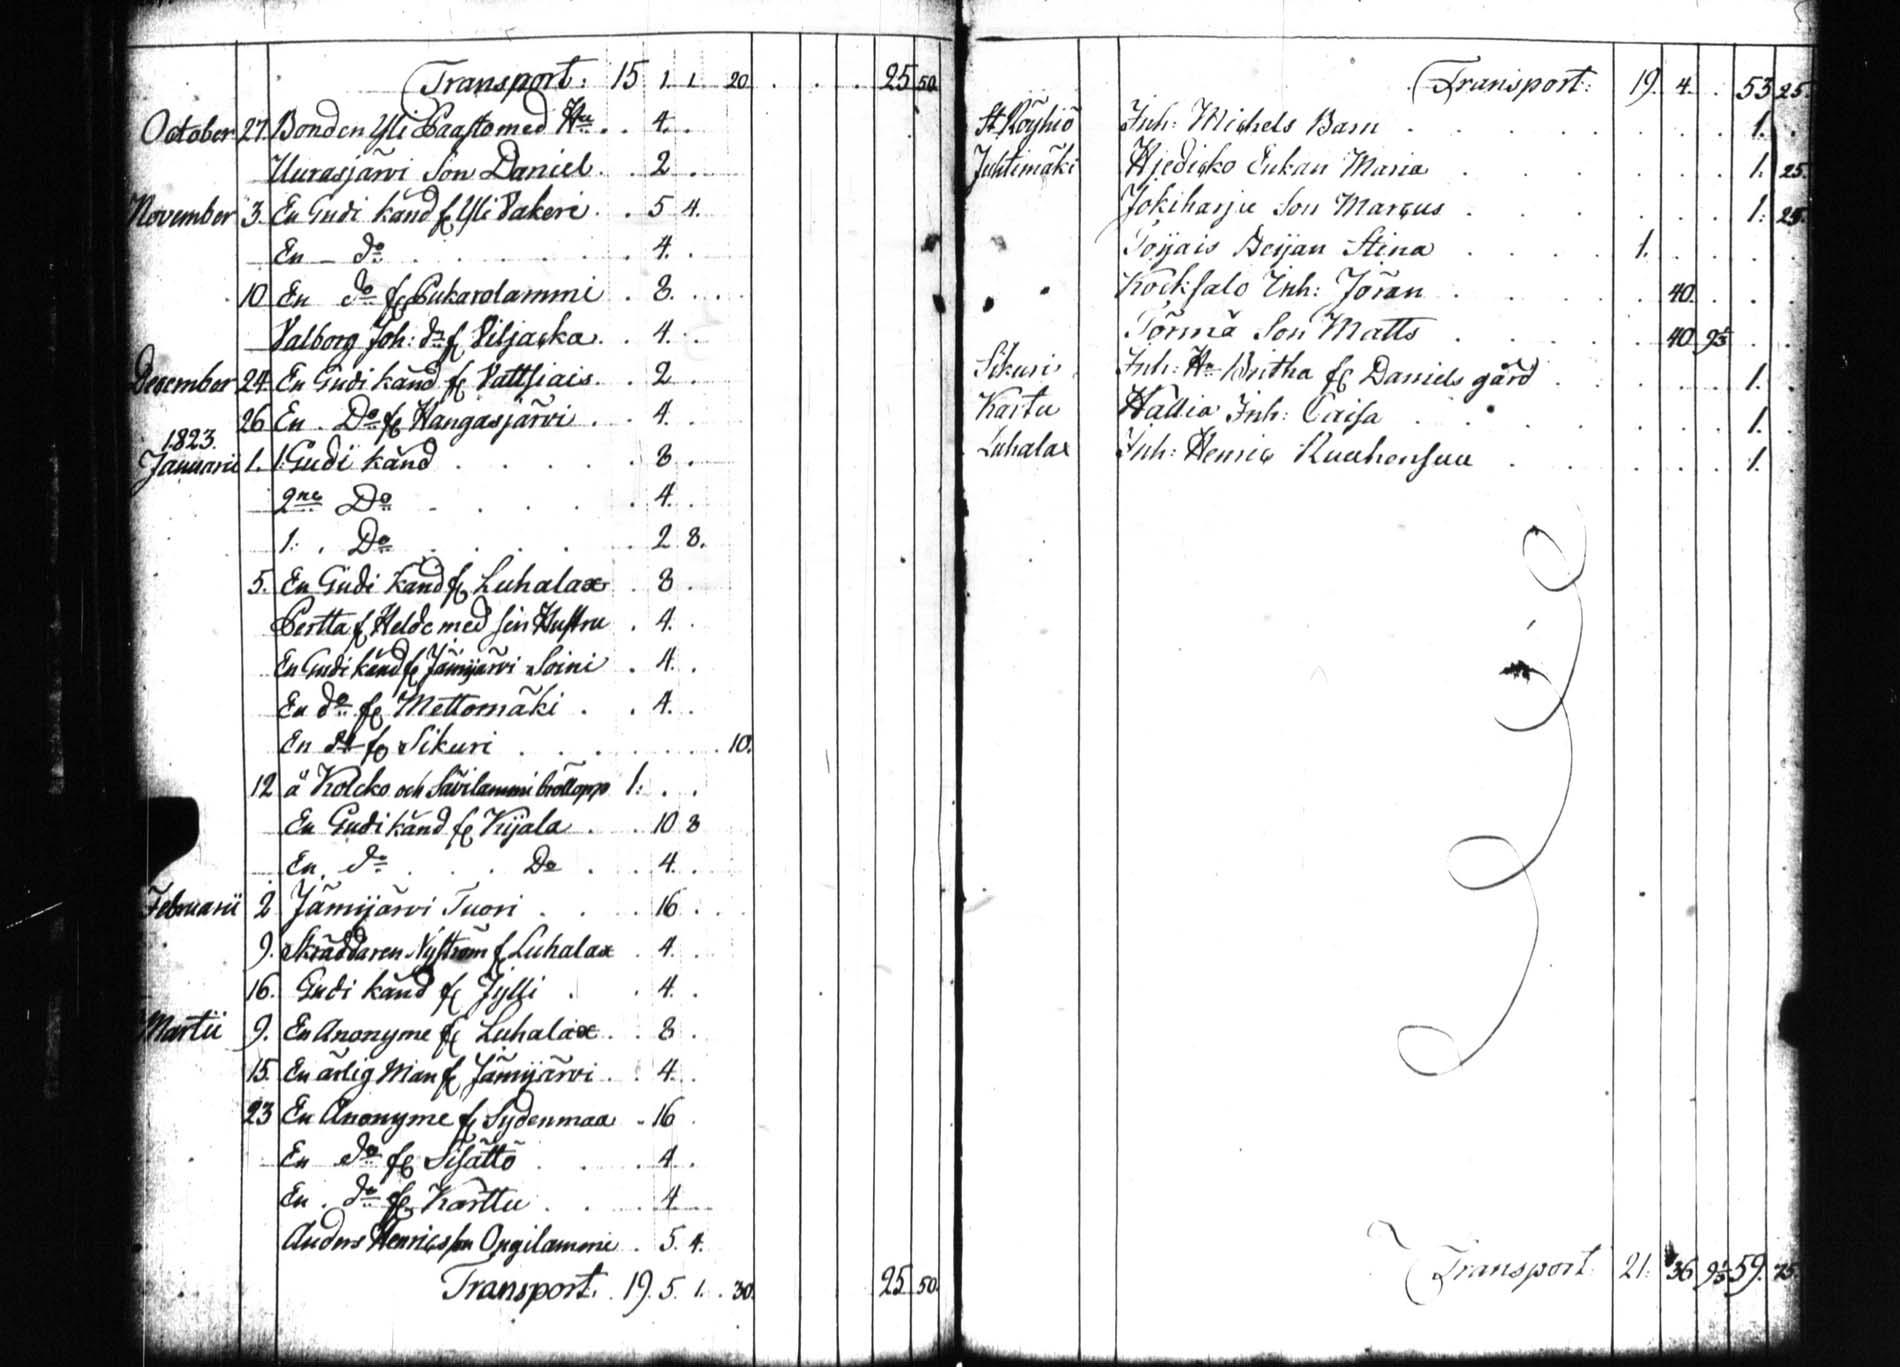 Transport: 15 1. 1. 20 25 50.
October 27. Bonden Yli Paasto med Hu 4.
Uurasjärvi Son Daniel 2
November 3. En Gudi känd fr Yli Vakeri 5 4.
En do 4.
10 En do fr Pukarolammi 8.
Valborg Joh: dr fr Viljacka 4.
December 24. En Gudi känd fr Vattsiais 2
26 En Do fr Kangasjärvi 4.
1823.
Januarii 1. 1. Gudi känd 8
2ne Do 4.
1. Do 2 8.
5. En Gudi känd fr Luhalax 8
Pertta fr Heldo med sin Hustru 4.
En Gudi känd fr Jämijärvi Soini 4.
En do fr Mettomäki 4.
En do fr Sikuri 10.
12 å Kolcko och Savilammi bröllopp 1:
En Gudi känd fr Kijala 10 8
En do Do 4.
Februarii 2 Jämijärvi Tuori 16
9. Skräddaren Nyström fr Luhalax 4.
16. Gudi känd fr Jylli 4.
Martii 9. En Anonyme fr Luhalax 8
15. En ärlig Man fr Jämijärvi 4.
23 En Anonyme fr Sydenmaa 16
En do fr Sisättö 4
En do fr Karttu 4
Anders Henricsson Ongilammi 5. 4.
Transport. 19. 5. 1. 30. 25 50.
Transport: 19. 4. 53 25.
St. Röyhiö Inh: Michels Barn 1.
Juhtimäki Hjedicko Enkan Maria 1. 25.
Jokiharju Son Marcus 1. 25.
Poijais Beijan Stina 1.
Kocksalo Inh: Jöran 40
Törmä Son Matts 40 9 3/5
Sikuri Inh: Hu Britha fr Daniels gård 1.
Kartu Hallia Inh: Caisa 1.
Luhalax Inh: Henric Ruuhensuu 1.
Transport 21. 36 9 3/5 59. 75.